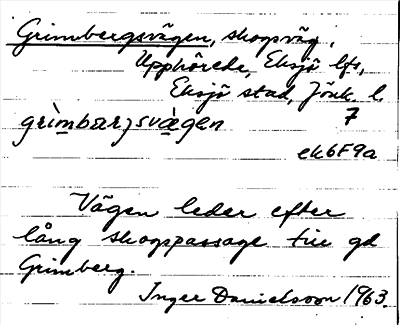 Grimbergsvägen, skogsväg,
Upphörede, Eksjö lfs,
Eksjö stad, Jönk. l.
grìmbærjsvä̀gen 7
ek6F9a
Vägen leder efter
lång skogspassage till gd
Grimberg.
Inger Danielsson 1963.